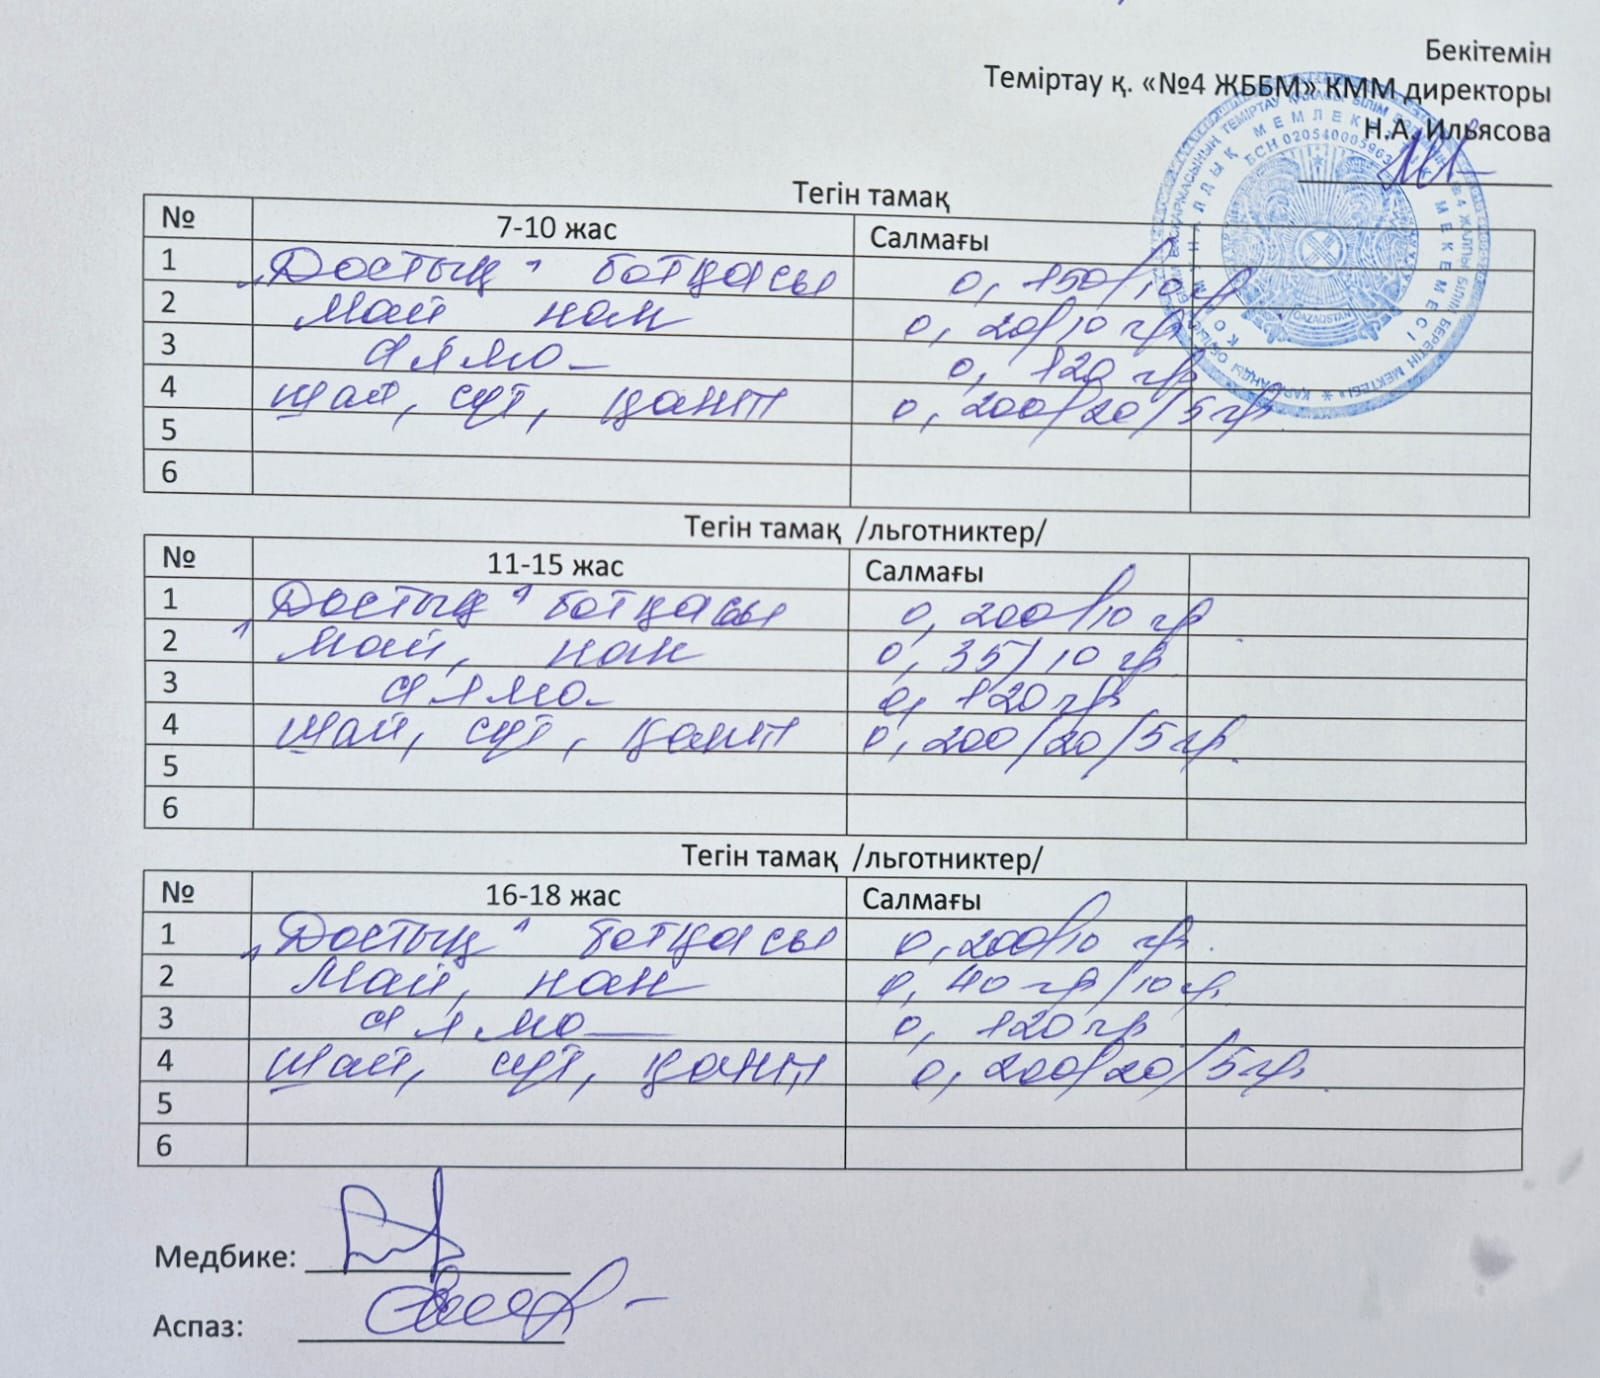 Бекітемін
Теміртау қ. «№4 ЖББМ» КММ директоры
Н.А. Ильясова
БСН 020540005963
QAZAQSTAN
Тегін тамақ
№ 7-10 жас Салмағы
1 "Достық" ботқасы 0, 150/10 гр
2 Май нан 0, 20/10 гр
3 алма 0, 120 гр
4 шай, сүт, қант 0, 200/20/5 гр.
5
6
Тегін тамақ /льготниктер/
№ 11-15 жас Салмағы
1 "Достық" ботқасы 0, 200/10 гр.
2 Май, нан 0, 35/10 гр
3 алма 0, 120 гр
4 шай, сүт, қант 0, 200/20/5 гр.
5
6
Тегін тамақ /льготниктер/
№ 16-18 жас Салмағы
1 "Достық" ботқасы 0, 200/10 гр.
2 Май, нан 0, 40 гр/10 гр.
3 алма 0, 120 гр
4 шай, сүт, қант 0, 200/20/5 гр.
5
6
Медбике:
Аспаз: